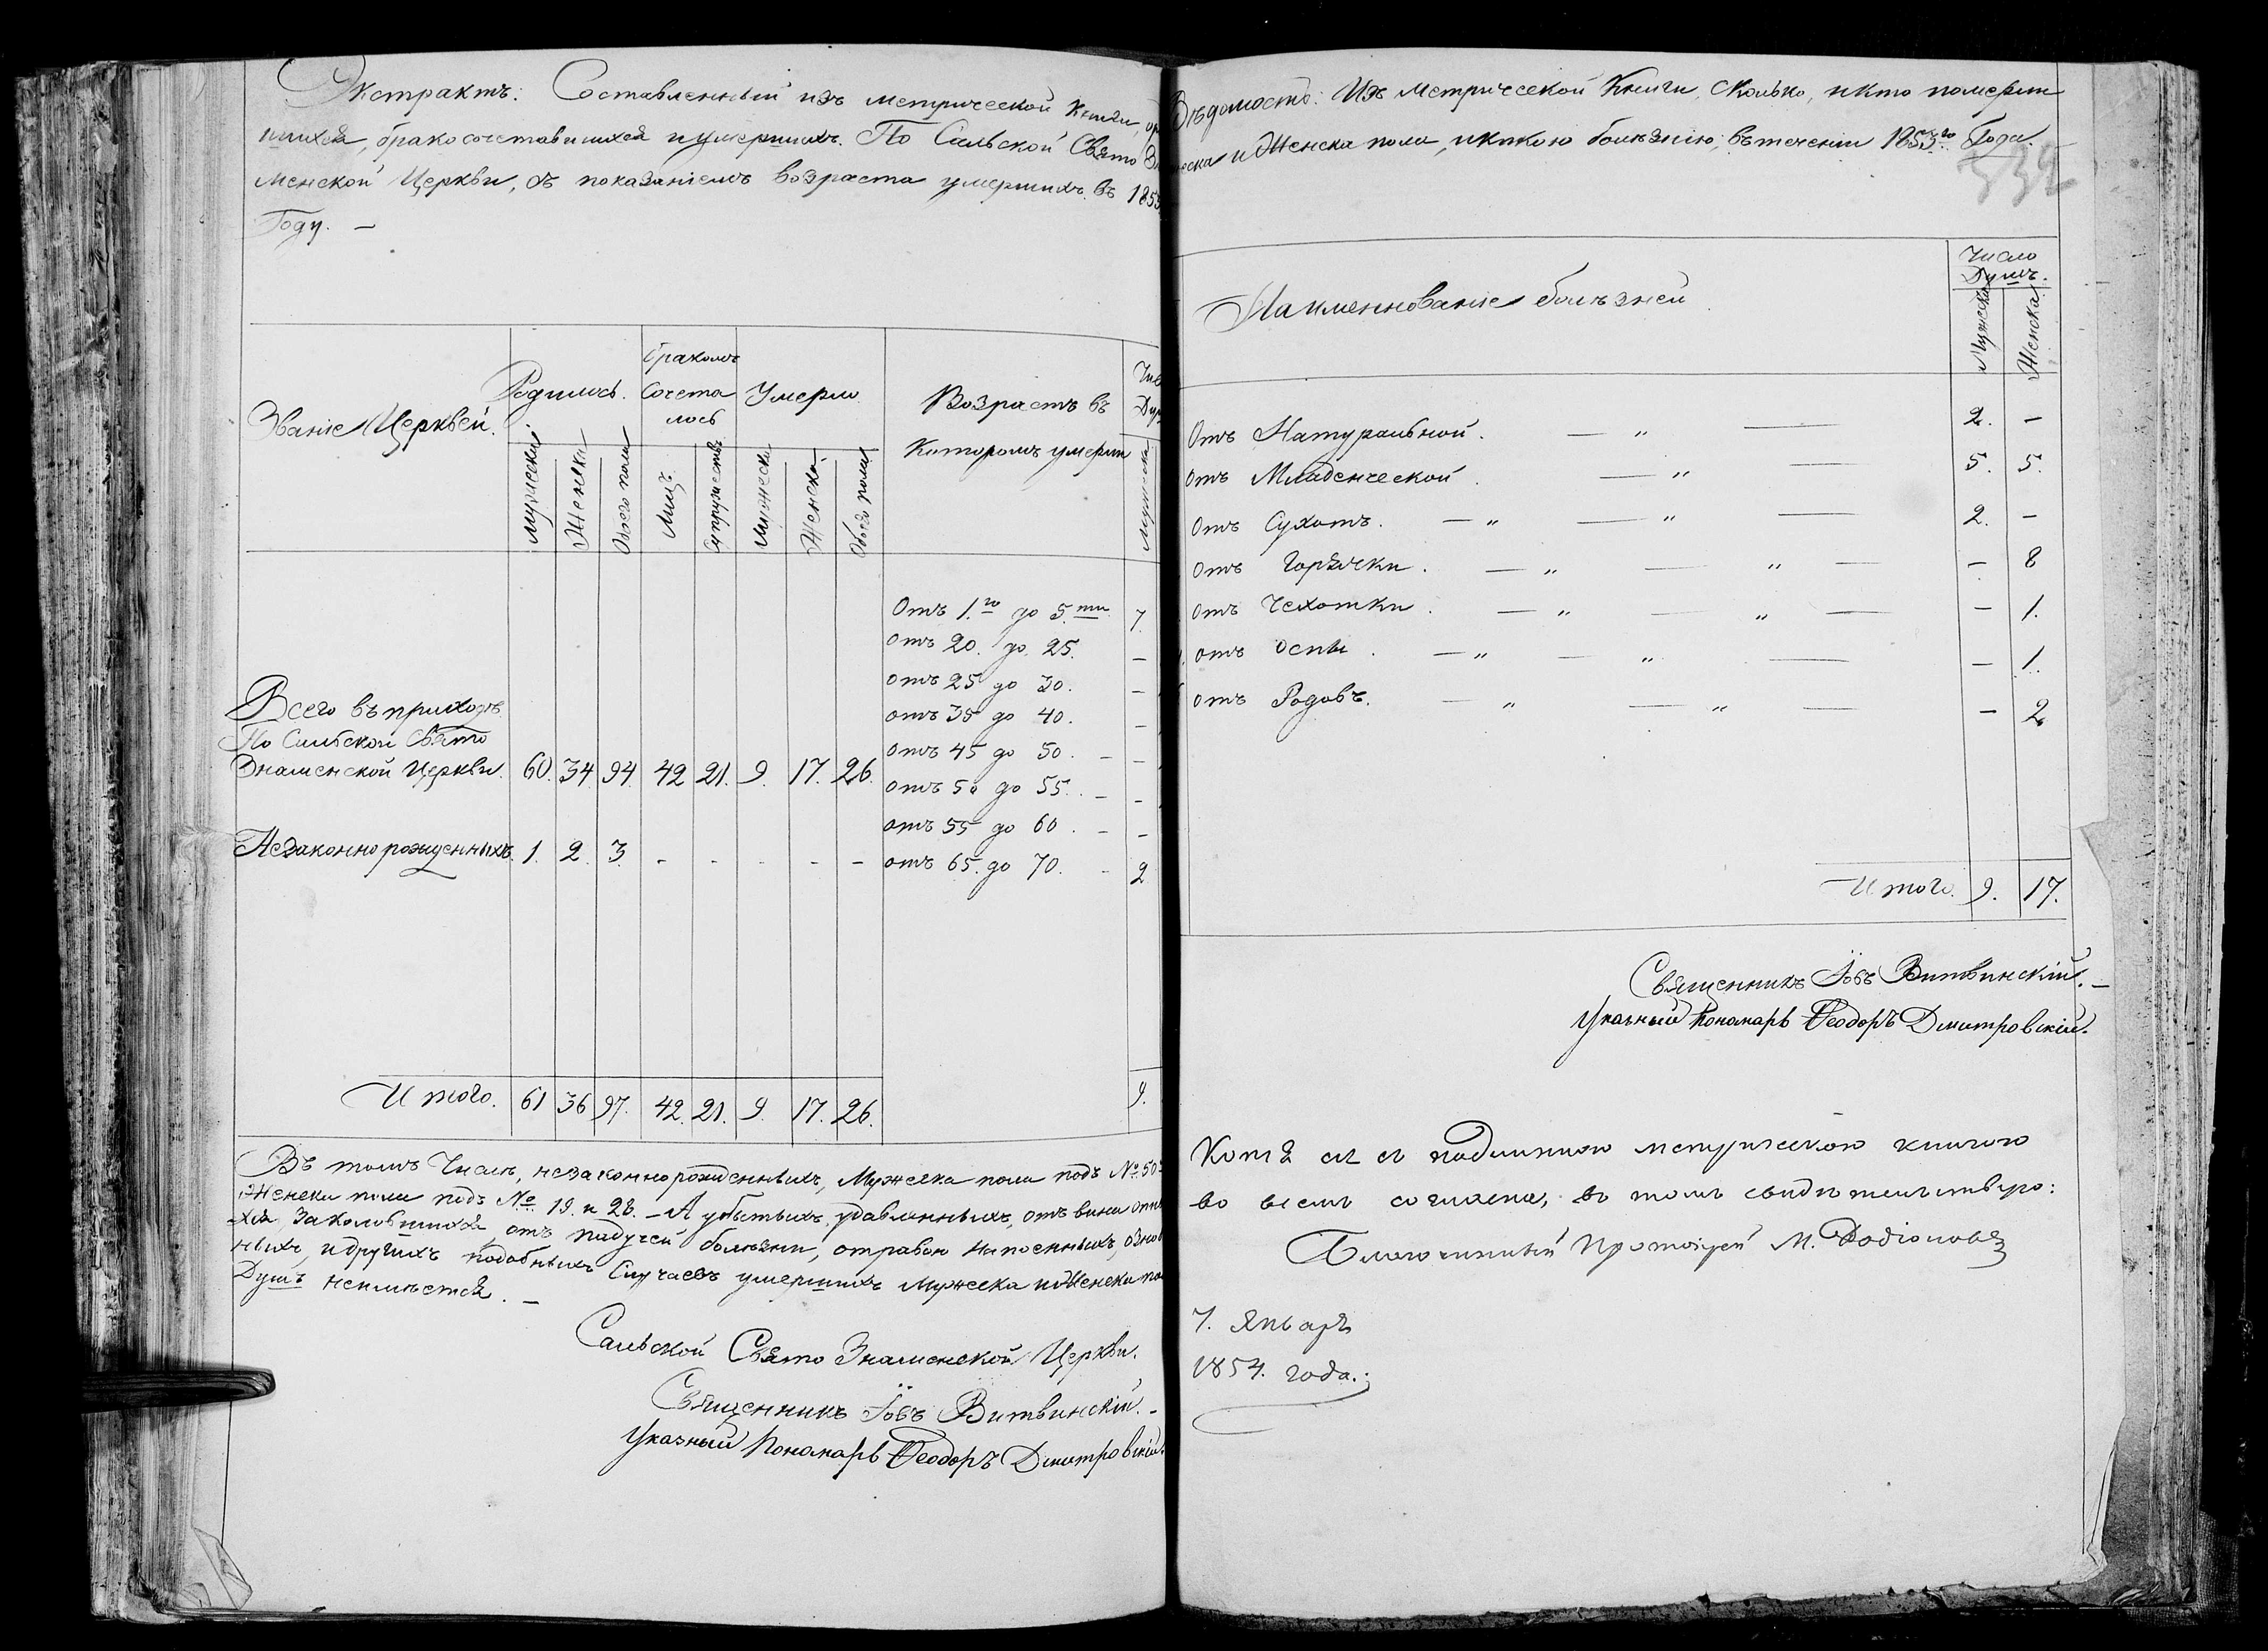 Экстрактъ. Составленный изъ метрической книги,
шихся, бракосочетавшихся и умершихъ. По Сальской Свято Зна
менской Церкви, съ показаніемъ возраста умершихъ. въ 1853
Году. —
Званіе Церквей.
Родилось.
бракомъ
Сочета
лось
Умерло
Возрастъ въ
Которомъ умерли
Чис
Душ
Мужеска
Женска
Обоего пола
Лицъ
Супружествъ
Мужеска
Женска
Обоего пола
Мужеска
Отъ 1.го до 5.ти 7.
отъ 20. до 25. —
отъ 25 до 30. —
отъ 35 до 40. —
отъ 45 до 50. — —
отъ 50 до 55. — —
отъ 55 до 60. — —
отъ 65. до 70. — 2
Всего въ приходѣ
По Сальской Свято
Знаменской Церкви. 60. 34. 94. 42 21. 9. 17. 26.
Незаконнорожденныхъ. 1. 2. 3. - - - - -
Итого. 61 36 97. 42. 21. 9. 17. 26. 9.
Въ томъ Числѣ, незаконнорожденныхъ, Мужеска пола подъ № 50
Женска пола подъ №. 19. и 28. — А убитыхъ, удавленныхъ, отъ вина
хся, Заколовшихся, отъ падучей болѣзни, отравою напоенныхъ,
ныхъ, и другихъ подобныхъ Случаевъ умершихъ Мужеска и Женска по
Душъ неимѣется. —
Сальской Свято Знаменской Церкви.
Священникъ Іовъ Витвинскій. -
Указный Пономарь Ѳеодоръ Дмитровскій.
Вѣдомость: Изъ Метрической Книги, Сколько, икто померли
жеска и Женска пола, икакою болѣзнію, въ теченіи 1853го Года.
332
Наименованіе болѣзней.
Число
Душъ.
Мужеска
Женска
Отъ Натуральной. — „ — 2. —
отъ Младенческой. — „ — 5. 5.
отъ Сухотъ. — „ — „ — 2. —
отъ Горячки. — „ — „ — — 8
отъ Чехотки. — „ — „ — — 1.
отъ Оспы. — „ — „ — — 1.
отъ Родовъ. — „ — „ — — 2
Итого. 9. 17.
Священникъ Іовъ Витвинскій. —
Указный Пономарь Ѳеодоръ Дмитровскій.
Копія сія съ подлинною метрическою книгою
во всемъ согласна, въ томъ свидѣтельствую:
Благочинный Протоіерей М. Родіоновъ
7. Января
1854. года.